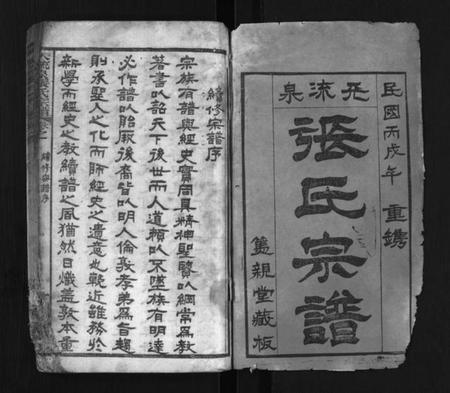 民國丙戌年 重鐫
天流泉
張氏宗譜
篤親堂藏板
續修宗譜序
宗族有譜與經史實同具精神聖賢以綱常為教
著書以詔天下後世而人道賴以不墜族有明達
必作譜以貽厥後裔皆以明人倫敦孝弟為旨趨
則承聖人之化而師經史之遺意也輓近雖務於
新學而經史之教續譜之風猶然日熾蓋敦本重
續修宗譜序